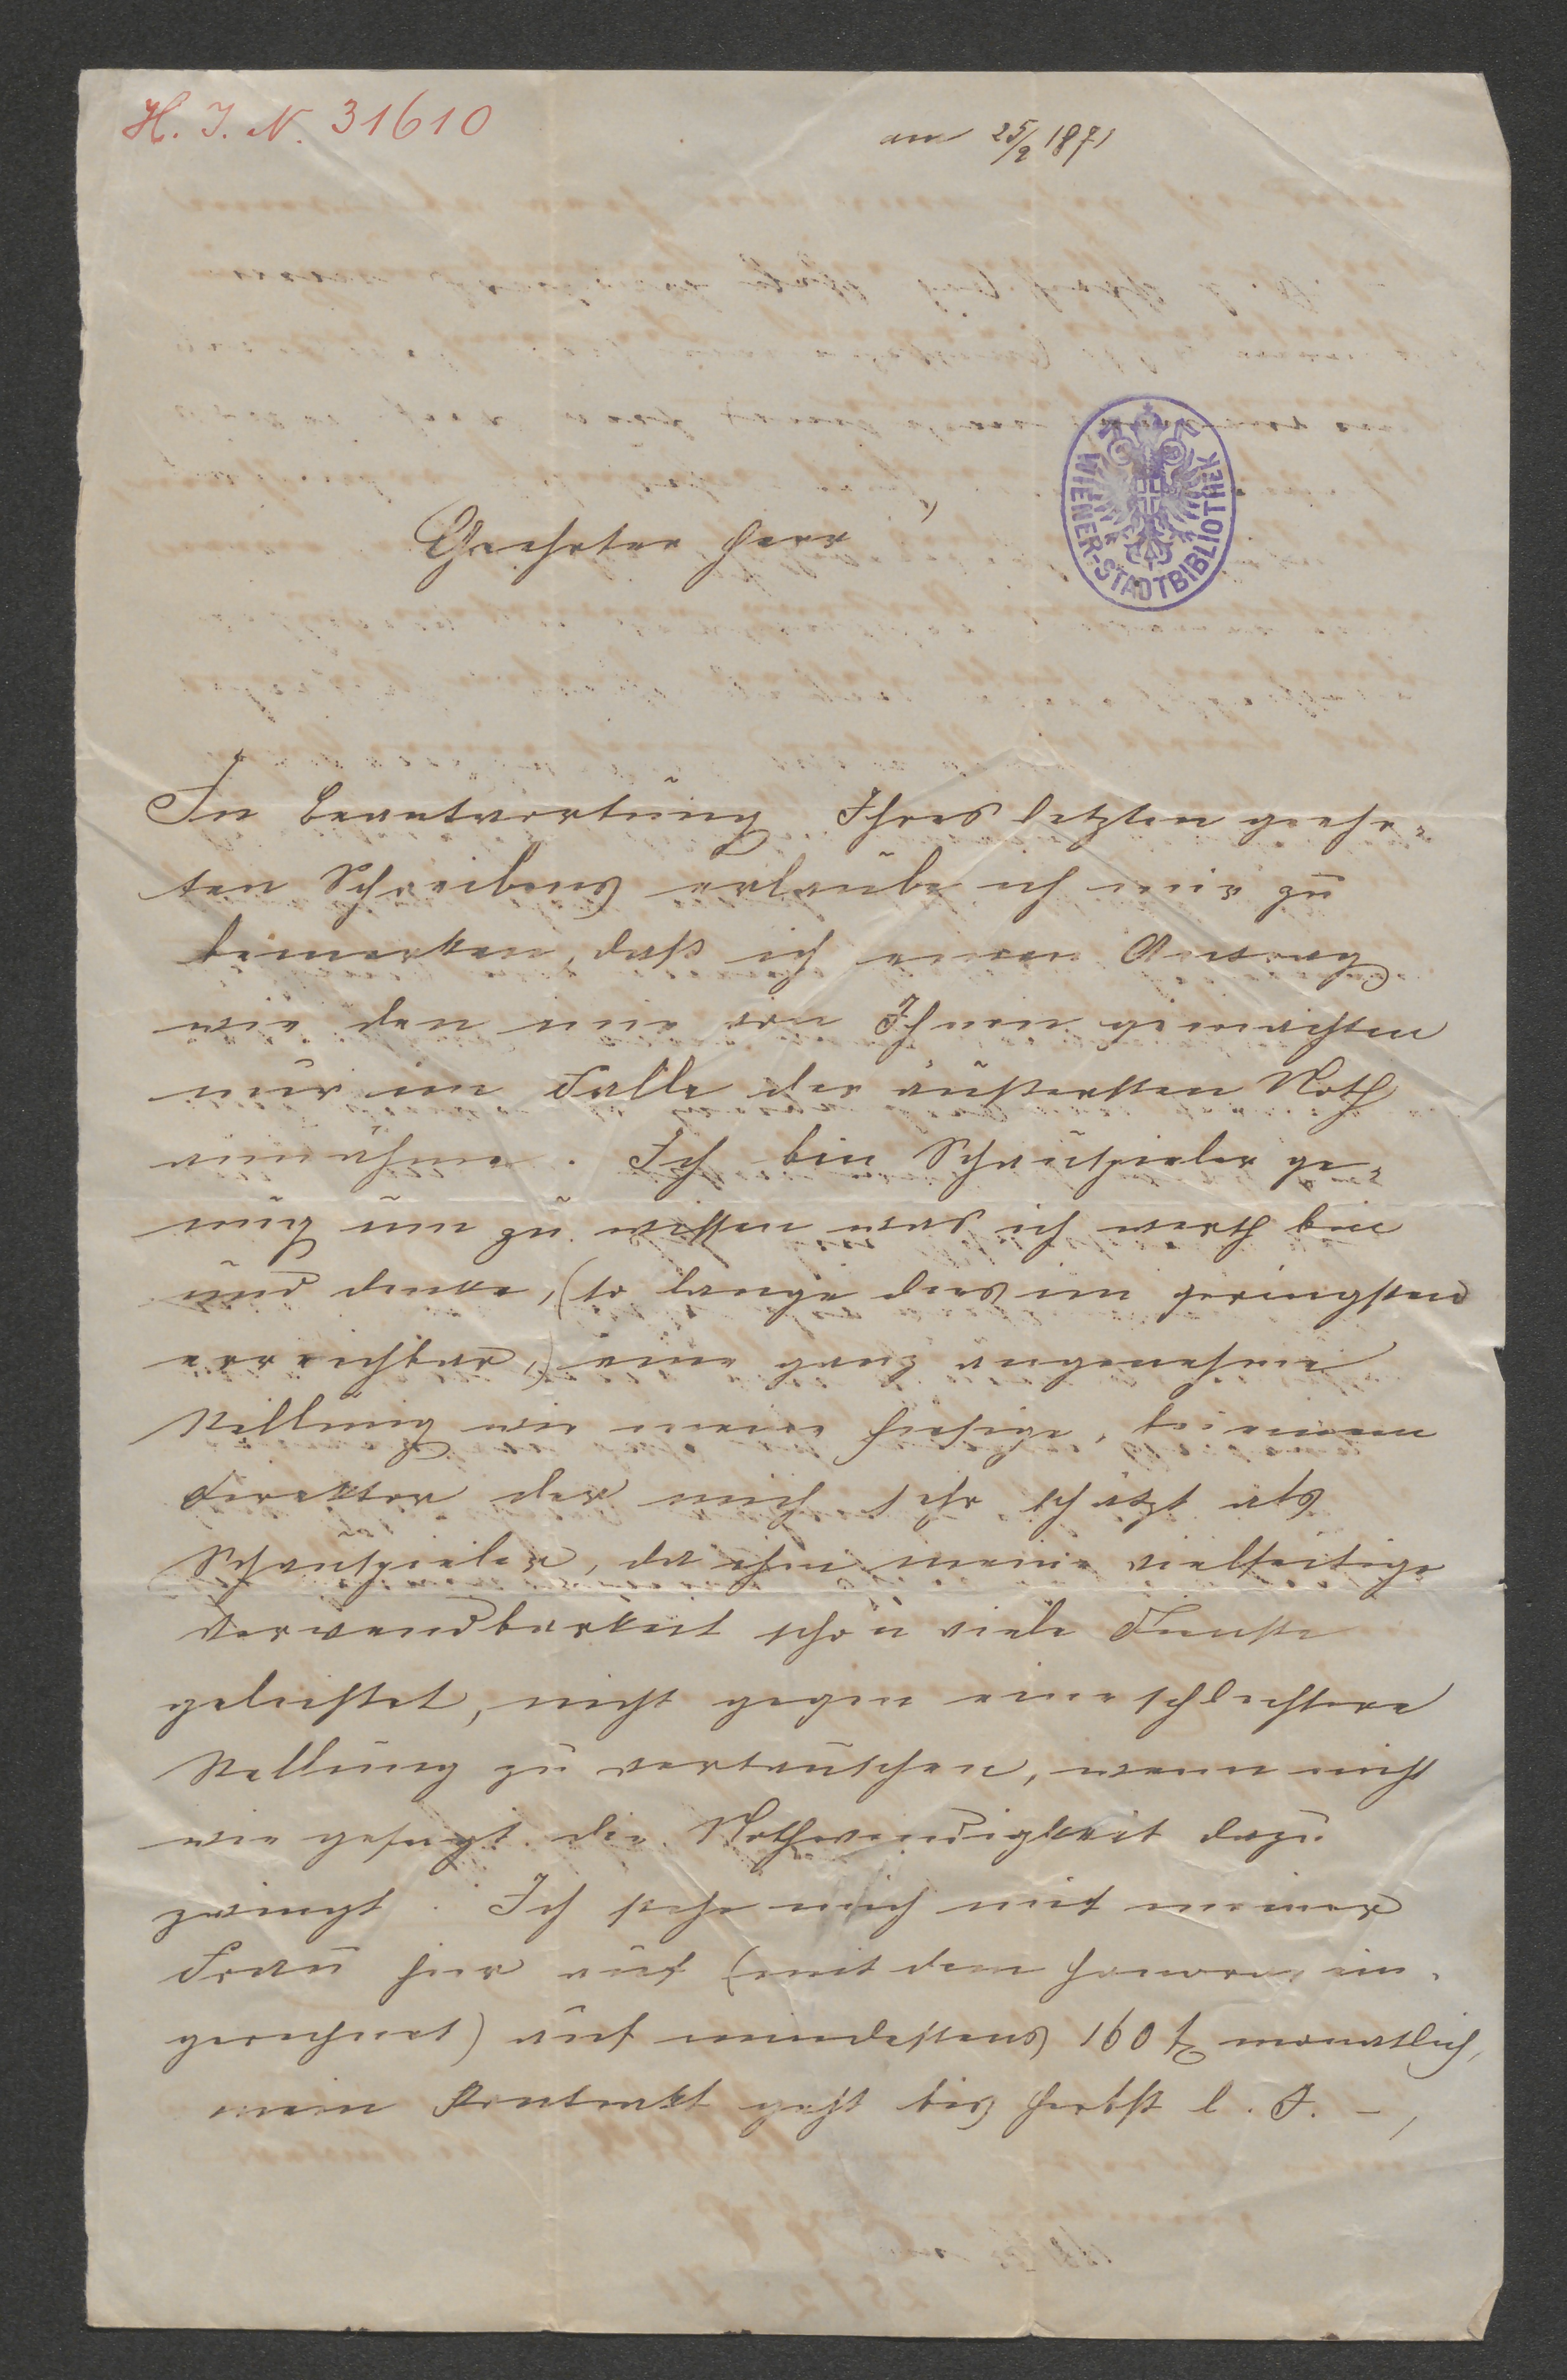 H. I. N. 31610
am 25/2 1871
WIENER-STADTBIBLIOTHEK
Geehrter Herr
In Beantwortung Ihres letzten geehr-
ten Schreibens erlaube ich mir zu
bemerken, dass ich einen Antrag
wie den mir von Ihnen gemachten
nur im Falle der äußersten Noth
annähme. Ich bin Schauspieler ge-
nug um zu wissen was ich werth bin
und denke, (so lange das im geringsten
erreichbar,) eine ganz angenehme
Stellung wie meine hiesige, bei einem
Direktor der mich sehr schäzt als
Schauspieler, da ihm meine vielseitige
Verwendbarkeit schon viele Dienste
geleistet, nicht gegen eine schlechtere
Stellung zu vertauschen, wenn nicht
wie gesagt die Nothwendigkeit dazu
zwingt. Ich stehe mich mit meiner
Frau hier auf (mit dem Honorar ein-
gerechnet) auf mindestens 160 f monatlich,
mein Kontrakt geht bis Herbst l. J. –,